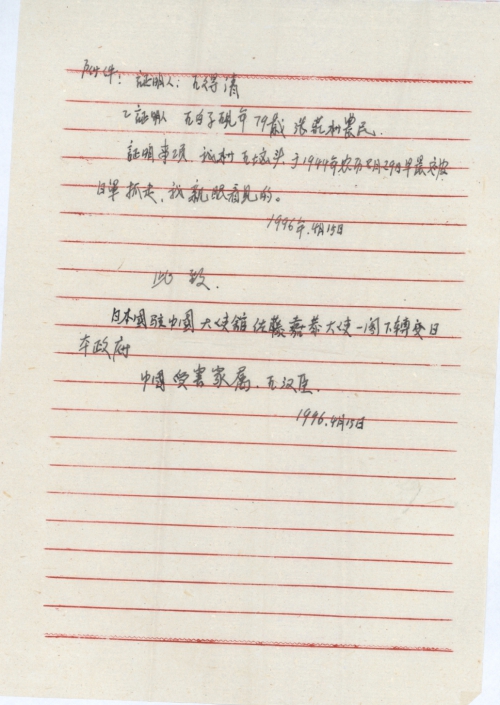 附件: 证明人: 王得清
证明人 现年79歲 洪庄村農民.
証明事项. 我村 于1944年农历 月29日早晨 被
日军抓走, 我亲眼看見的。
1996年.4月15日
此致.
日本國驻中國大使館佐藤嘉恭大使一阁下轉交日
本政府
中國受害家属. 王汉臣.
1996.4月15日